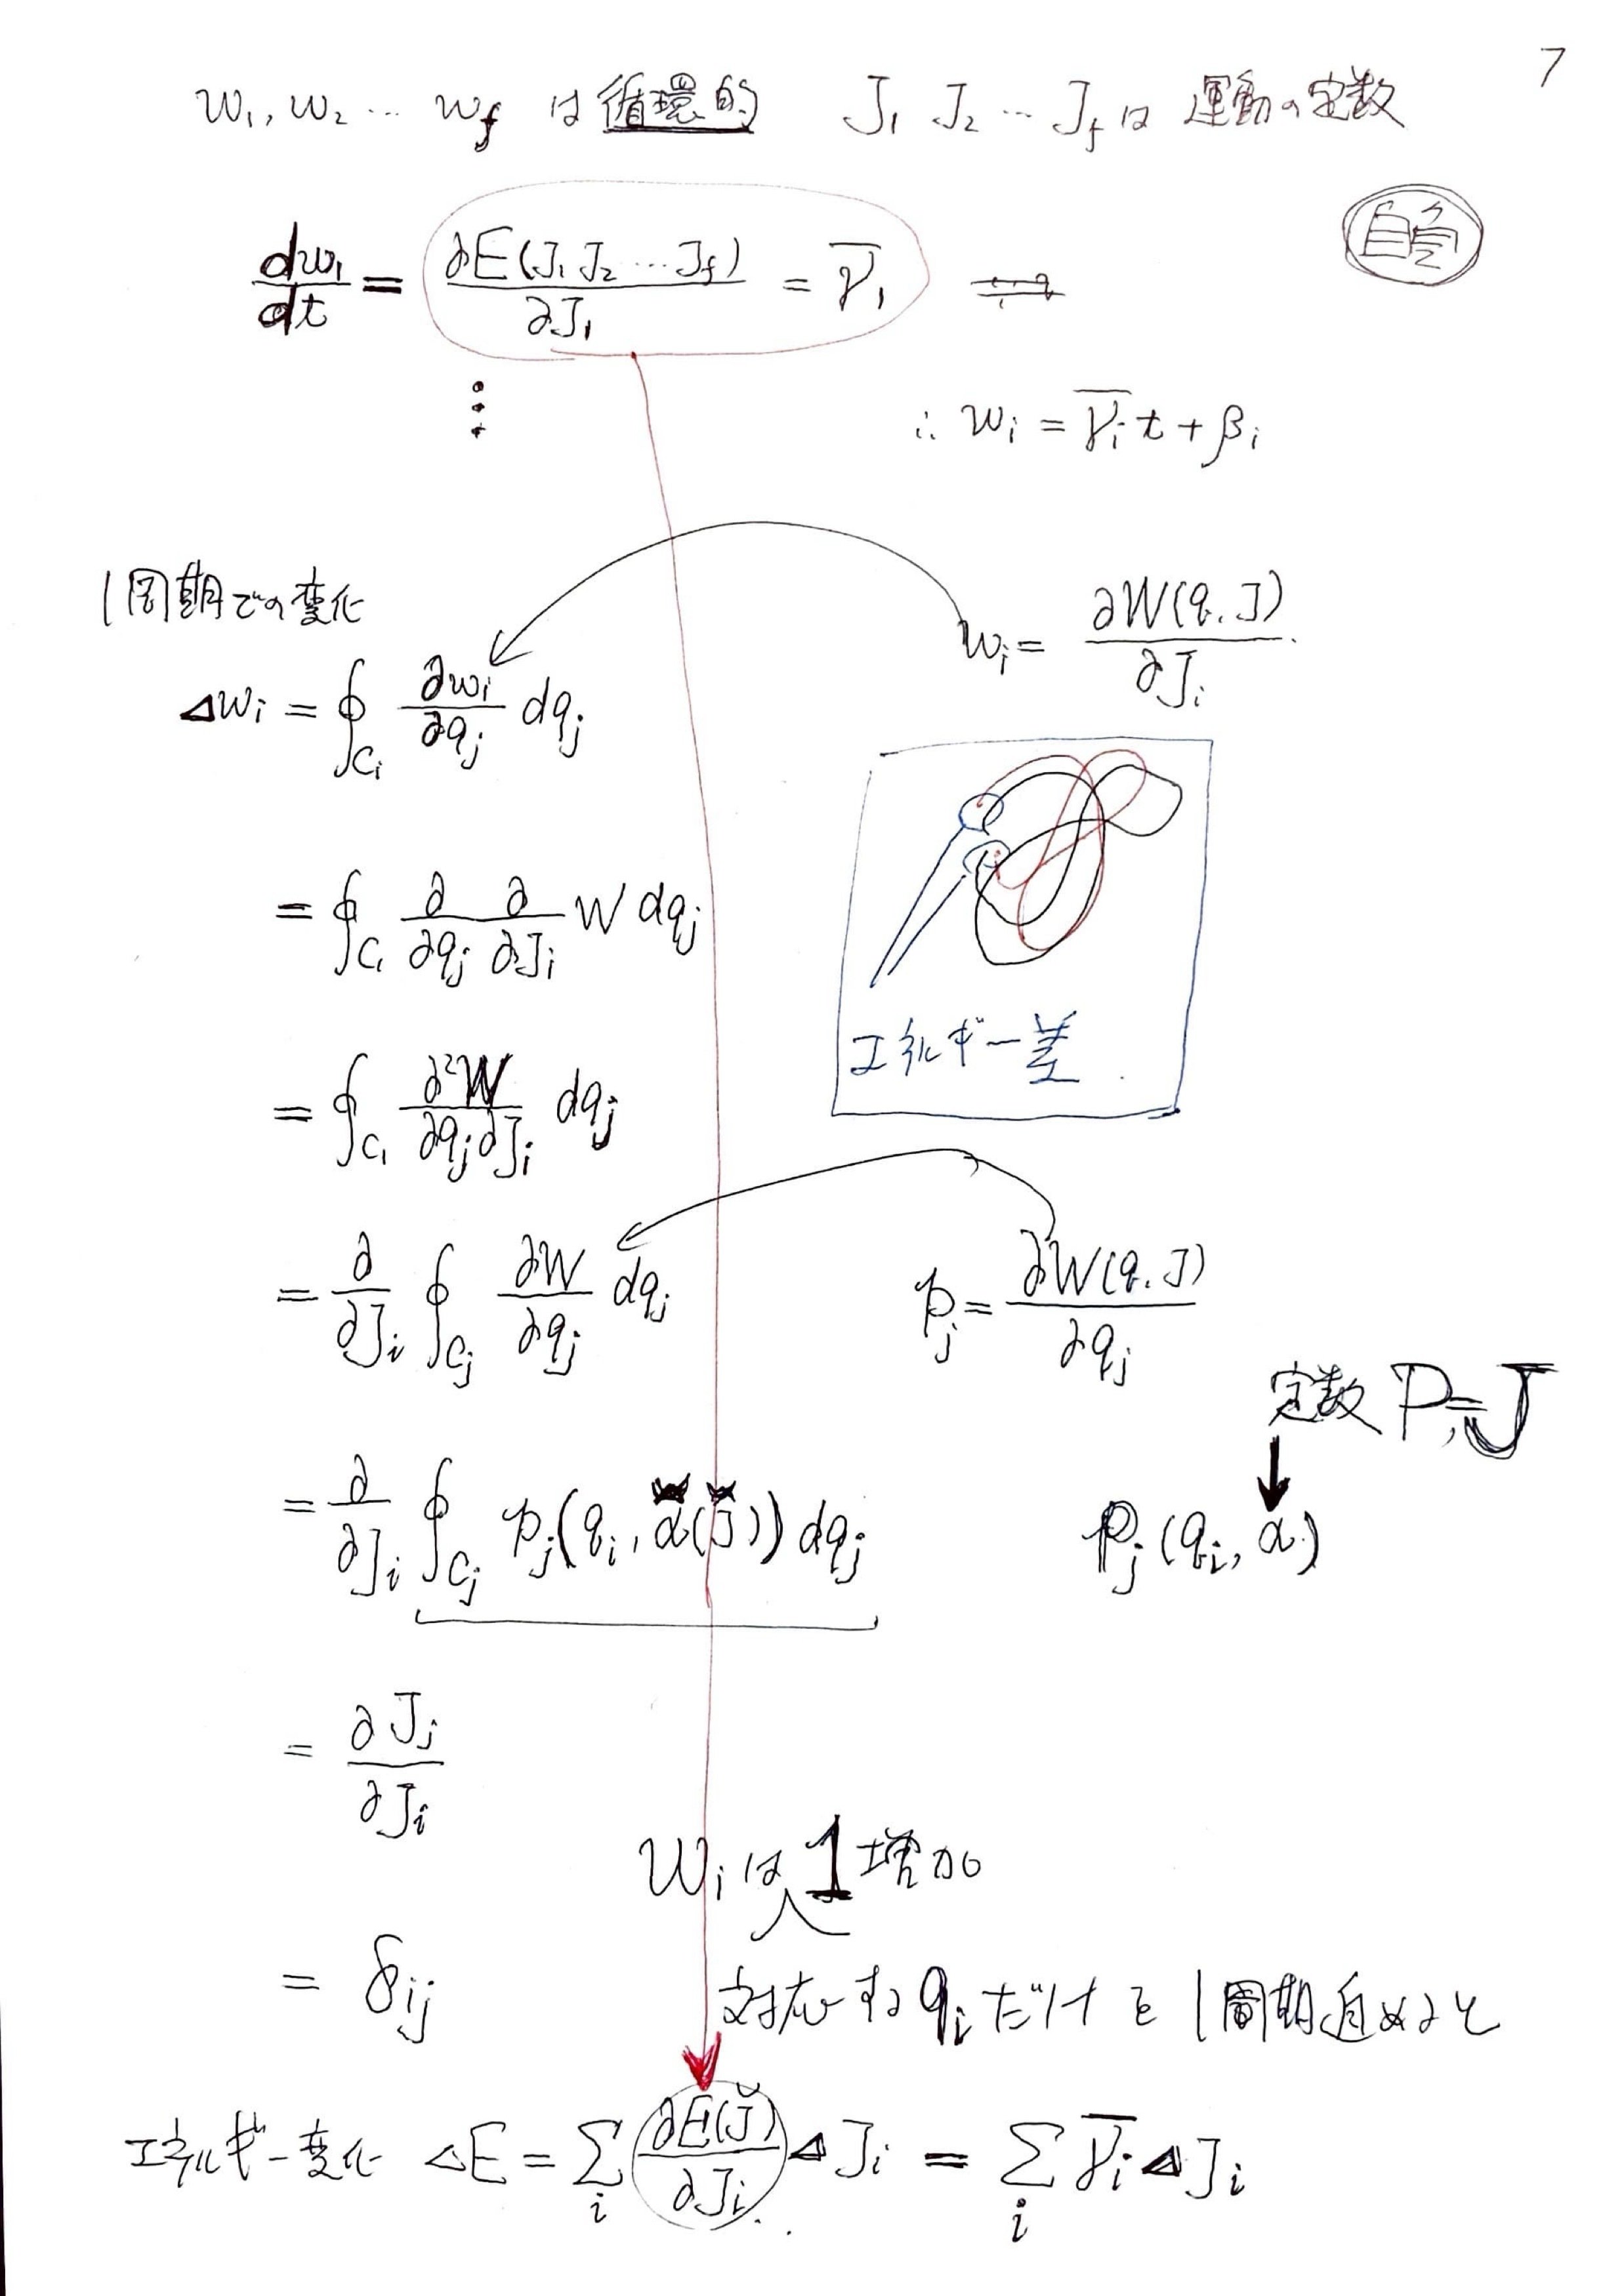 7
w₁, w₂ … w_f は循環的 J₁ J₂ … J_f は 運動の定数
dw₁/dt = ∂E(J₁ J₂ … J_f)/∂J₁ = ν̄₁
⋮
∴ wᵢ = ν̄ᵢ t + βᵢ
1周期での変化
wᵢ = ∂W(q, J)/∂Jᵢ
Δwᵢ = ∮_Cᵢ ∂wᵢ/∂qⱼ dqⱼ
= ∮_Cᵢ ∂/∂qⱼ ∂/∂Jᵢ W dqⱼ
エネルギー差
= ∮_Cᵢ ∂²W/∂qⱼ∂Jᵢ dqⱼ
= ∂/∂Jᵢ ∮_Cⱼ ∂W/∂qⱼ dqⱼ
pⱼ = ∂W(q, J)/∂qⱼ
定数 Pᵢ=J
= ∂/∂Jᵢ ∮_Cⱼ pⱼ(qᵢ, α(J)) dqⱼ
pⱼ(qᵢ, α)
= ∂Jⱼ/∂Jᵢ
wᵢは 1 増加
= δᵢⱼ
対応する qᵢ だけを 1周期進めると
エネルギー変化 ΔE = Σᵢ ∂E(J)/∂Jᵢ ΔJᵢ = Σᵢ ν̄ᵢ ΔJᵢ